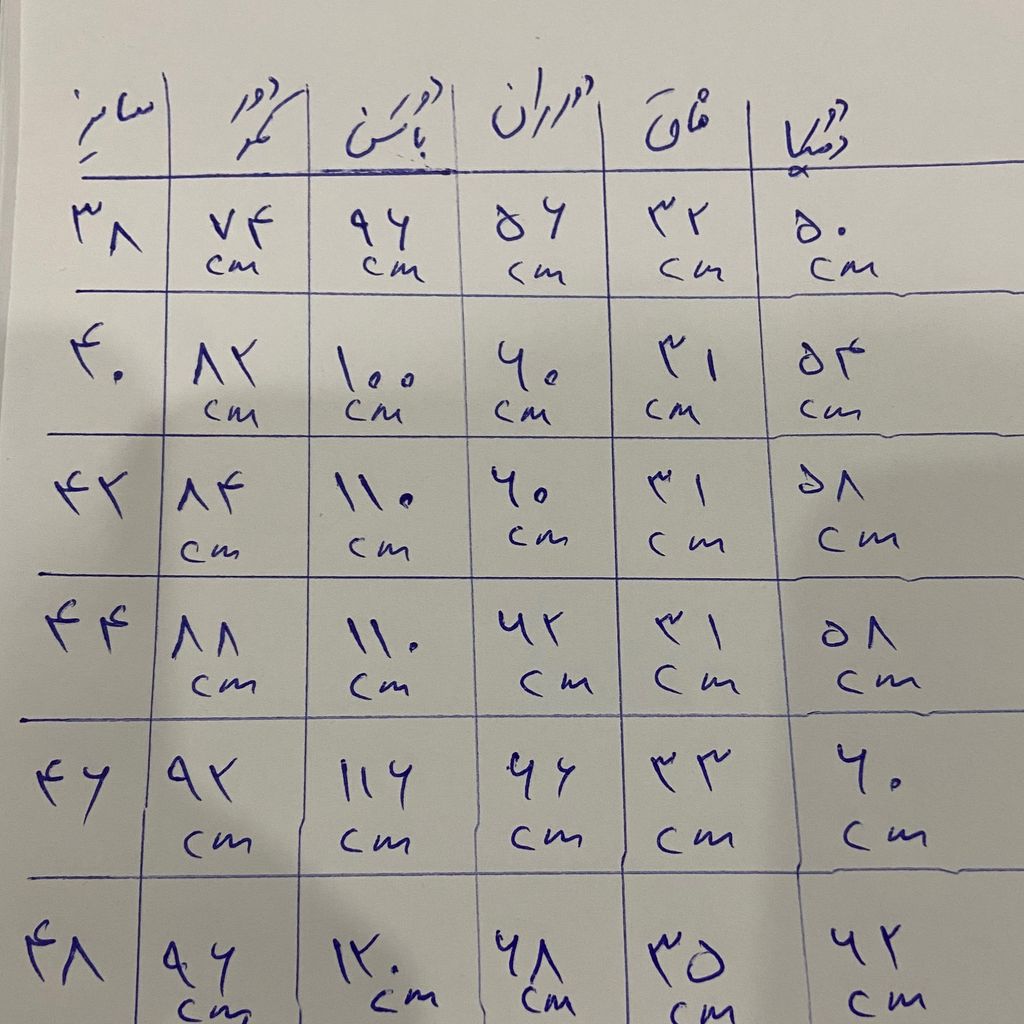 سایز دور کمر دور باسن دور ران فاق دور دمپا
۳۸ ۷۴ cm ۹۶ cm ۵۶ cm ۳۲ cm ۵۰ cm
۴۰ ۸۲ cm ۱۰۰ cm ۶۰ cm ۳۱ cm ۵۴ cm
۴۲ ۸۴ cm ۱۱۰ cm ۶۰ cm ۳۱ cm ۵۸ cm
۴۴ ۸۸ cm ۱۱۰ cm ۶۲ cm ۳۱ cm ۵۸ cm
۴۶ ۹۲ cm ۱۱۶ cm ۶۶ cm ۳۳ cm ۶۰ cm
۴۸ ۹۶ cm ۱۲۰ cm ۶۸ cm ۳۵ cm ۶۲ cm